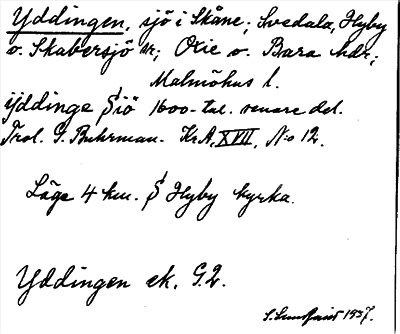 Yddingen, sjö i Skåne; Svedala, Hyby
o. Skabersjö snr; Oxie o. Bara hdr;
Malmöhus l.
ijddinge Siö 1600-tal. senare del.
Trol. G. Buhrman. Kr.A, XVII, No 12.
Läge 4 km. S Hyby kyrka.
Yddingen ek. G.2.
1937.